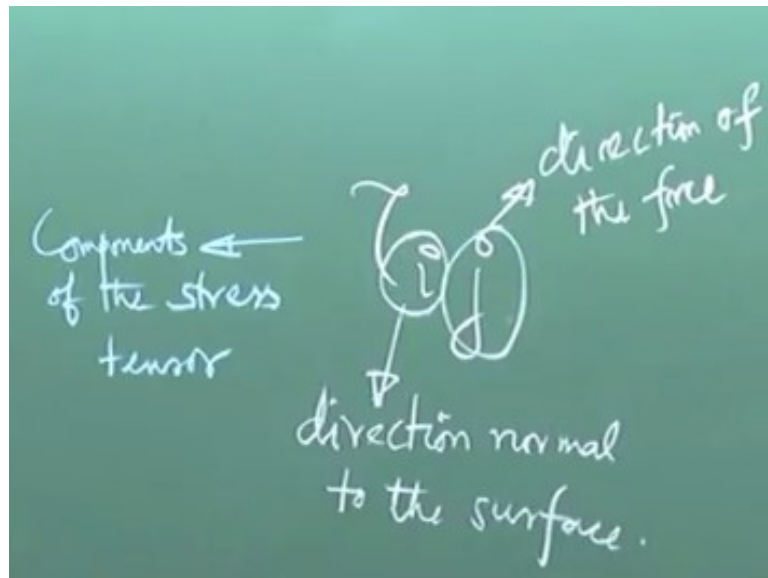 Components
of the stress
tensor
τij
direction of
the force
direction normal
to the surface.